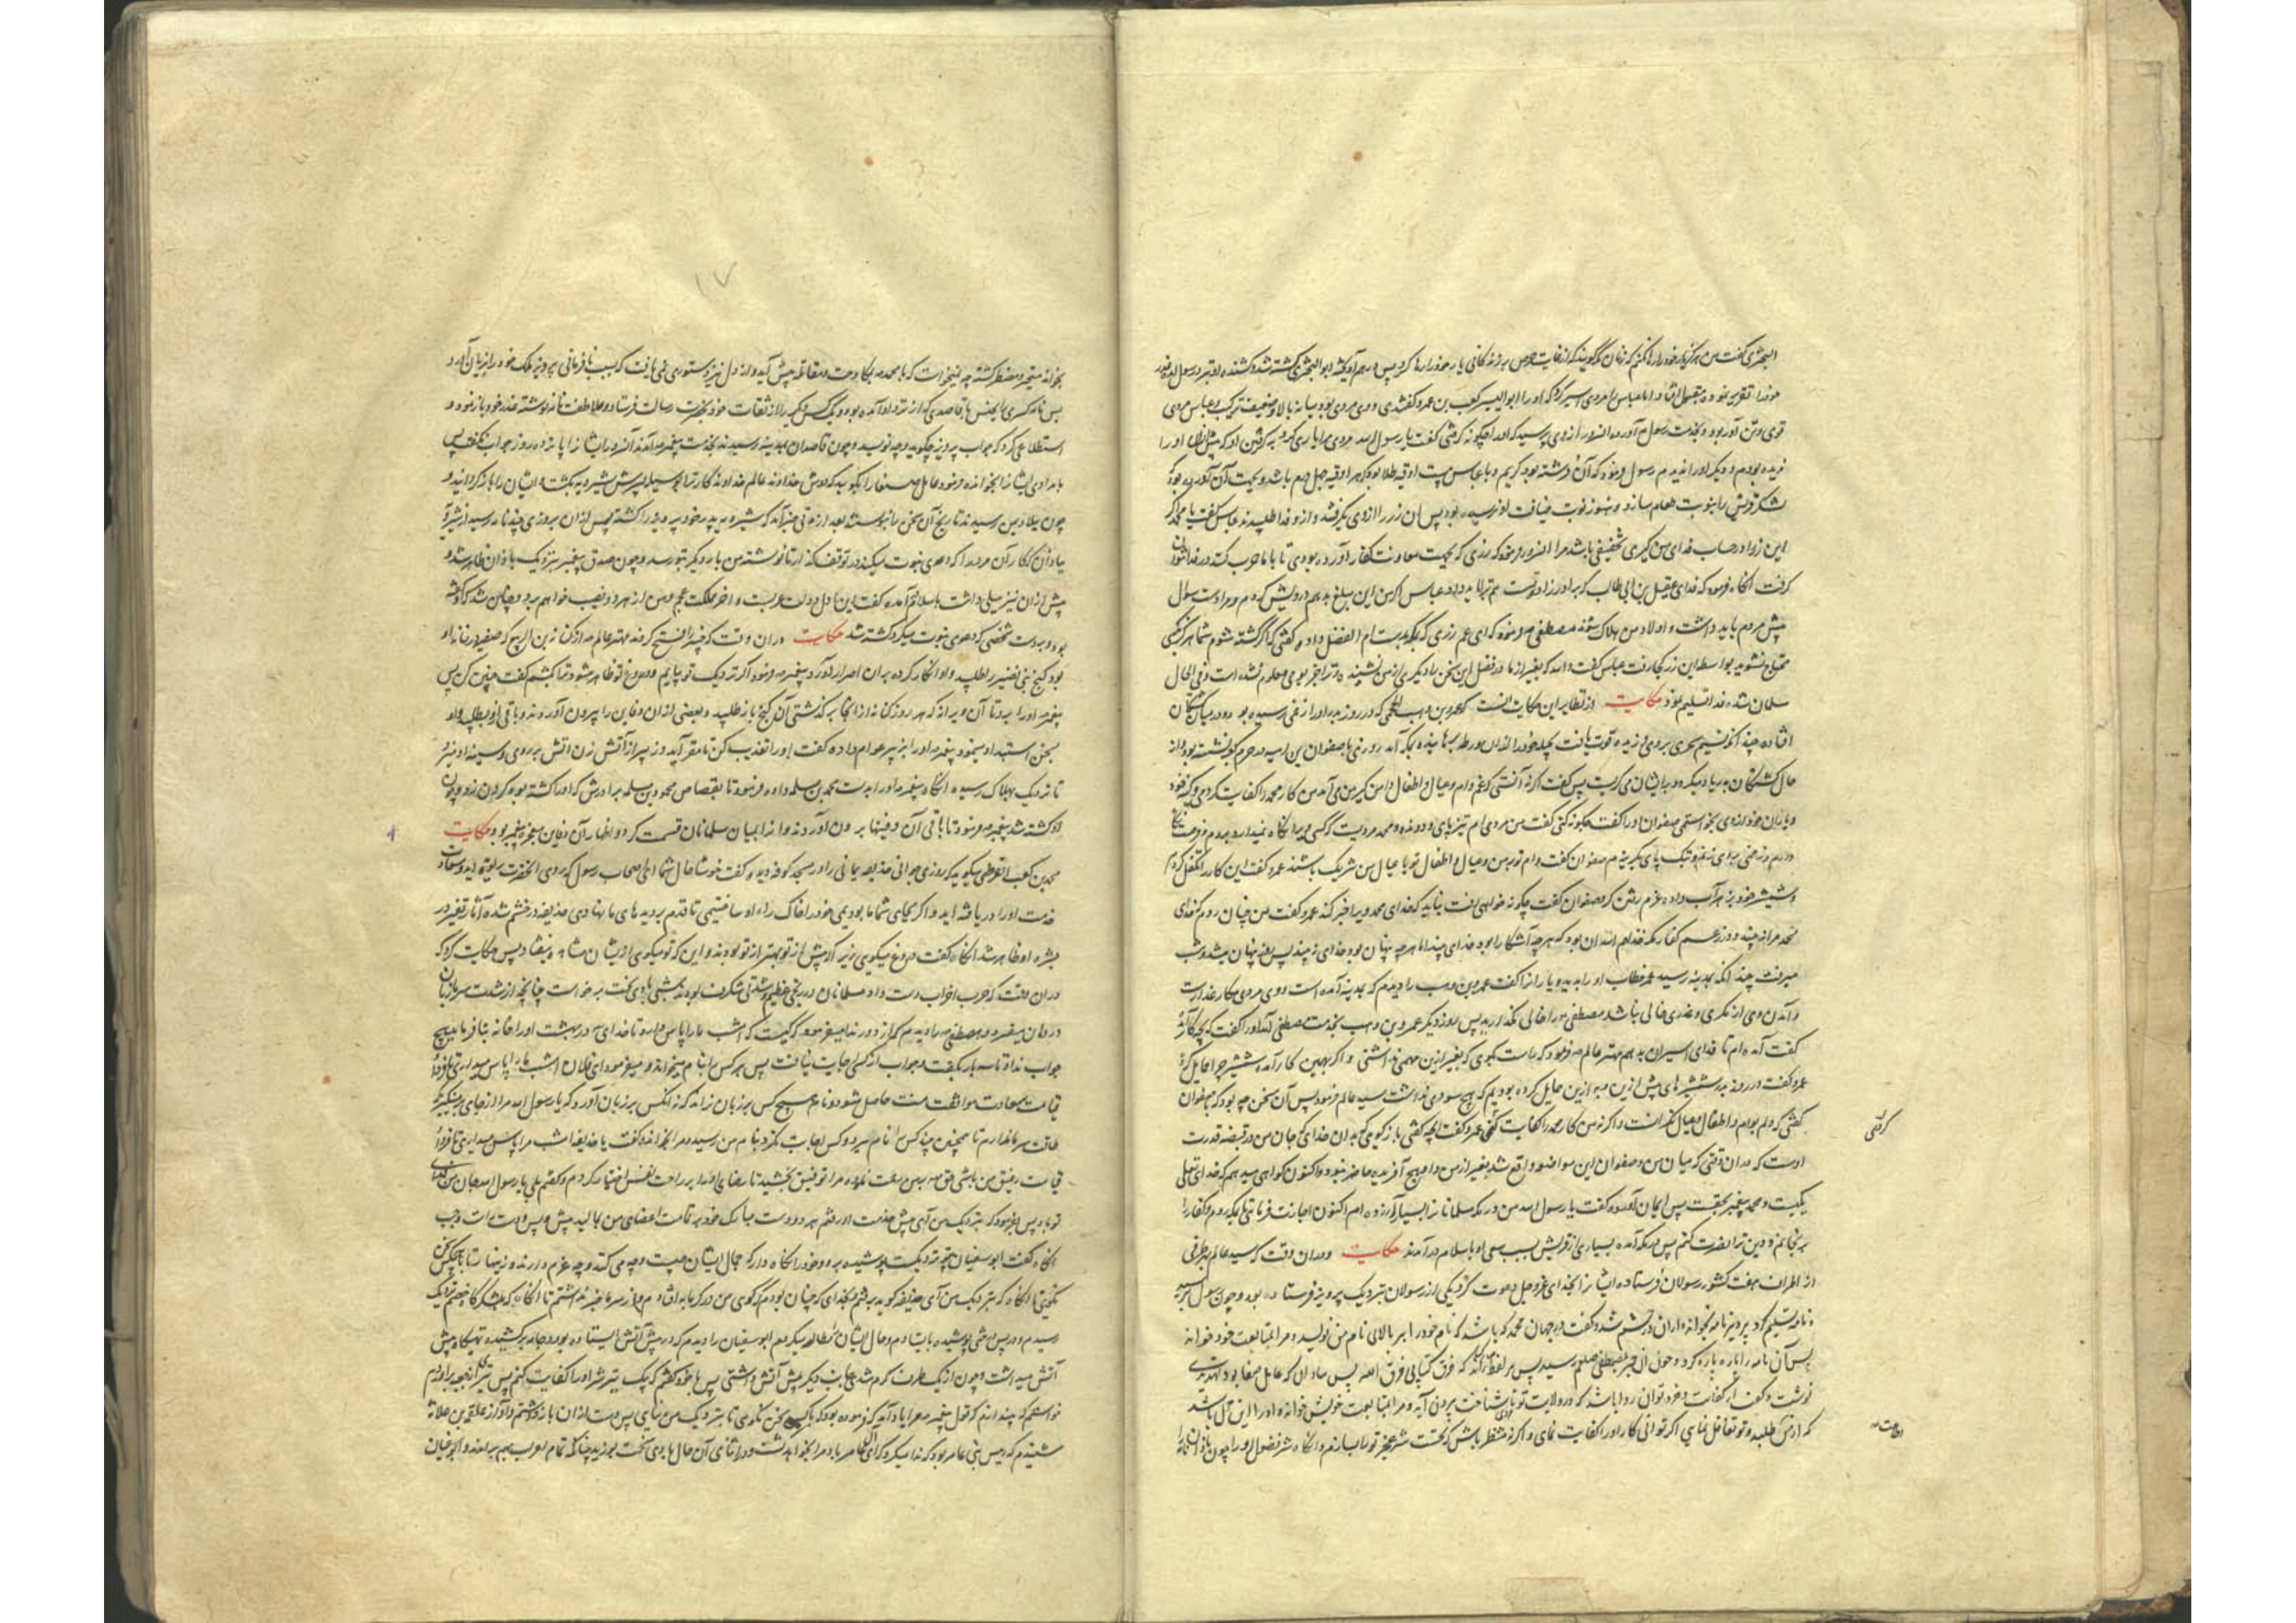 البختری گفت من هرگز یار خود را رها نکنم که زنان مکه گویند که از غایت حرص بر زندگانی یار خود را رها کرد پس درهم آویخته و ابوالبختری کشته شد و کشنده او نزد رسول آمد
عذر تقریر نموده مقبول افتاد و اما عباس را مردی اسیر کرد که او را ابوالیسر کعب بن عمرو گفتندی و وی مردی بود میانه بالا و ضعیف ترکیب و عباس مردی
قوی و تن آور بود و بخدمت رسول آورده از وی پرسید که او را چگونه گرفتی گفت یا رسول الله مردی مرا یاری کرد بر گرفتن او که مثل او را
ندیده بودم و دیگر او را ندیدم رسول فرمود که آن فرشته بود کریم و با عباس بیست اوقیه طلا بود که هر اوقیه چهل درم باشد و بجهت آن آورده بود که
لشکر قریش را بنوبت طعام سازد و هنوز نوبت ضیافت او نرسیده بود پس آن زر را از وی بگرفتند و ازو فدا طلبیدند عباس گفت یا محمد
این زر را در حساب فدای من گیری تخفیفی باشد مرا فرمود که زری که بجهت معاونت کفار آورده بودی تا با ما حرب کنند در فدا نتوان
گرفت انگاه فرمود که فدای عقیل بن ابی طالب که برادرزاده تست هم ترا باید داد عباس گفت اگر من این مبلغ بدهم درویش گردم و مرا دست سؤال
پیش مردم باید داشت و اولاد من هلاک شوند مصطفی فرمود که ای عم زری که بمکه بدست ام الفضل دادی و گفتی که اگر کشته شوم شما هرگز
محتاج نشوید بواسطه این زر کجا رفت عباس گفت والله که بغیر از ما و ام فضل این سخن را دیگری از من نشنیده و ترا جز بوحی معلوم نشده است و فی الحال
مسلمان شد و فدا تسلیم نمود حکایت از نظایر این حکایت آنست که عمیر بن وهب الجمحی که در روز بدر او را زخمی رسیده بود و در میان کشتگان
افتاده چند آنکه نسیم سحری بر وی وزیده قوت یافت بحیله خود را از آن ورطه رهانیده بمکه آمد روزی با صفوان بن امیه در حرم کعبه نشسته بود از
حال کشتگان بدر یاد میکرد و بر ایشان می گریست پس گفت اگر نه آنستی که غم وام و عیال و اطفال دامن گیر من می آمد من کار محمد را کفایت کردمی و کین خود
و یاران خود از وی بخواستمی صفوان او را گفت چگونه کنی گفت من مردی ام تیز پای و دونده و محمد مردیست که کسی ویرا نگاه نمیدارد بروم و فرصت
دارم و زخمی بر وی زنم و بتک پای بگریزم صفوان گفت وام تو بر من و عیال و اطفال تو با عیال من شریک باشند عمرو گفت این کار را تکفل کردم
شمشیر خود بزهر آب داده عزم رفتن کرد صفوان گفت چگونه خواهی رفت نباید که خدای محمد ویرا خبر کند عمرو گفت من چنان روم که خدای
محمد مرا نه بیند و در زعم کفار مکه خذلهم الله آن بود که هر چه آشکارا بود خدای بیند اما هر چه پنهان بود خدای نه بیند پس روز پنهان میشد و شب
میرفت چندانکه بمدینه رسید عمر خطاب او را بدید و یاران را گفت عمرو بن وهب را دیدم که بمدینه آمده است و وی مردی مکار غدار است
و آمدن وی از مکری و غدری خالی نباشد مصطفی را خالی مگذارید پس روز دیگر عمرو بن وهب بخدمت مصطفی آمد او را گفت که بچه کار آمده
گفت آمده ام تا فدای اسیران بدهم مهتر عالم فرمود که راست بگوی که بغیر ازین مهمی داشتی و اگر بهمین کار آمده شمشیر چرا حمایل کرده
عمرو گفت در روز بدر شمشیرهای بیش ازین و به ازین حمایل کرده بودیم که هیچ سودی نداشت سید عالم فرمود پس آن سخن چه بود که با صفوان
گفتی که اگر وام و اطفال و عیال نگذاشت و اگر نه من کار محمد را کفایت کنمی عمرو گفت آنچه گفتی باز گوی که بدان خدای که جان من در قبضه قدرت
اوست که در آن وقتی که میان من و صفوان این مواضعه واقع شد بغیر از من و او هیچ آفریده حاضر نبود و اکنون گواهی میدهم که خدای تعالی
یکیست و محمد پیغمبر بحقست پس ایمان آورده گفت یا رسول الله من در مکه مسلمانان را بسیار آزرده ام اکنون اجازت فرمای تا بمکه روم و کفار را
برنجانم و دین ترا نصرت کنم پس در مکه آمده بسیاری از قریش بسبب سعی او باسلام درآمدند حکایت و در آن وقت که سید عالم بهر طرفی
از اطراف هفت کشور رسولان فرستاده ایشان را بخدای عز و جل دعوت کرد یکی از رسولان نزدیک پرویز فرستاده بود و چون رسول رسید
و نامه تسلیم کرد پرویز نامه بخواند و از آن در خشم شد و گفت در جهان محمد که باشد که نام خود را بر بالای نام من نویسد و مرا بمتابعت خود خواند
پس آن نامه را پاره پاره کرد و چون آن خبر بمصطفی صلعم رسید پس بر لفظ راند که فرق کتابی فرق الله پس بباذان که عامل صنعا بود تهدیدی
نوشت و گفت از کفایت و خرد تو آن روا باشد که در ولایت تو ناشناخت بیرون آید و مرا بمتابعت خویش خواند و او را این محل باشد
که از من طلبد و تو تغافل نمایی اگر توانی کار او را کفایت نمای و اگر نه منتظر باش که نخست شر عجز تو را بسازم و انگاه شر فضول او را چون باذان نامه را
کردتی
۱۷
بخواند متحیر و مضطر گشته چه نمیخواست که با محمد بمکاوحت و مقاتله پیش آید و از دل نیز دستوری نمی یافت که بسبب نافرمانی پرویز ملک خود را بزیان آورد
پس نامه کسری را بجنس با قاصدی که از نزد او آمده بود و یک کس دیگر را از ثقات خود بحضرت رسالت فرستاد و ملاطفت نامه نوشته عذر خود باز نمود و
استطلاعی کرد که جواب پرویز چگوید و چه نویسد و چون قاصدان بمدینه رسیدند بخدمت پیغمبر آمدند آنسرور ایشان را پانزده روز جواب نگفت پس
بامدادی ایشان را بخوانده فرمود عامل صنعا را بگویید که دوش خداوند عالم خداوندگار ترا بوسیله پسرش شیرویه بکشت و ایشان را باز گردانید و
چون ببلاد یمن رسیدند تاریخ آن سخن را نبوشتند بعد از مدتی خبر آمد که شیرویه پدر خود پرویز را کشته پس از آن بروزی چند نامه رسید از شیرویه
بباذان که کار آن مرد را که دعوی نبوت میکند در توقف گذار تا نوشته من بار دیگر بتو رسد و چون صدق پیغمبر نزدیک باذان ظاهر شد و
پیش از آن نیز میلی داشت باسلام آمده گفت این اول دولت عربست و آخر مملکت عجم و من از هر دو نصیب خواهم برد و چنان شد که او گفته
بود و بدست شخصی که دعوی نبوت میکرد کشته شد حکایت در آن وقت که خیبر را فتح کردند مهتر عالم از کنانة بن الربیع که صفیه در خانه او
بود گنج بنی نضیر را طلبید و او انکار کرده بر آن اصرار آورد پیغمبر فرمود اگر نزدیک تو یابیم و دروغ تو ظاهر شود ترا بکشم گفت چنین کن پس
پیغمبر او را برد تا آن ویرانه که هر روز کنانه از آنجا بر گذشتی آن گنج باز طلبید و بعضی از آن دفاین را بیرون آوردند و باقی ازو بطلبید و او
بمحن استبداد مینمود پیغمبر او را بزبیر عوام داده گفت او را تعذیب کن تا مقر آید و زبیر از آتش زن آتش بر روی و سینه او میزد
تا نزدیک بهلاک رسیده انگاه پیغمبر او را بدست محمد بن مسلمه داده فرمود تا بقصاص محمود بن مسلمه برادرش که او را کشته بود گردن زد و چون
او کشته شد پیغمبر فرمود تا باقی آن دفینها برون آوردند و آنرا میان مسلمانان قسمت کرد و اظهار آن دفاین معجزه پیغمبر بود حکایت
محمد بن کعب القرظی میگوید که روزی جوانی حذیفه یمانی را در مسجد کوفه دیده گفت خوشا حال شما ای اصحاب رسول که روی آنحضرت دیده اید و سعادت
خدمت او را دریافته اید و اگر بجای شما ما بودیمی خود را خاک راه او ساختیمی تا قدم بر دیدهای ما بنهادی حذیفه در خشم شده آثار تغیر در
بشره او ظاهر شد انگاه گفت دروغ میگوی زیرا که پیش از تو بهتر از تو بودند و این که تو میگوی از ایشان مشاهده نیفتاد پس حکایت کرد که
در آن وقت که حرب احزاب دست داد مسلمانان در رنجی عظیم و شدتی شگرف بودند شبی بادی سخت برخاست چنانچه از شدت سرما زبان
در دهان میفسرد و مصطفی را دیدم که از دور ندا میفرمود که کیست که امشب ما را پاس دارد تا خدای در بهشت او را خانه بنا فرماید هیچ
جواب نداد تا سه بار بگفت و جواب از کسی اجابت نیافت پس هر کس را بنام میخواند و میفرمود ای فلان امشب ما را پاس میداری تا فردا
قیامت سعادت موافقت منت حاصل شود و نام هیچ کس بر زبان نراند که نه آنکس بر زبان آورد که یا رسول الله مرا از جای بر مینگیزد که
طاقت سرما ندارم تا همچنین چند کس را نام میبرد و کس اجابت نکرد بنام من رسید و مرا بخوانده گفت یا حذیفه امشب مرا پاس میداری تا فردا
قیامت رفیق من باشی حق مرا توفیق بخشید تا رضای او را بر راحت نفس اختیار کردم و گفتم بلی یا رسول الله جان من فدای
تو باد پس فرمود که نزدیک من آی پیش خدمت او رفتم هر دو دست مبارک خود بر تمامت اعضای من بمالید پیش و پس و دست راست و چپ
انگاه گفت ابوسفیان بتو نزدیکست پوشیده برو و خود را نگاه دار که حال ایشان چیست و چه می کنند و چه عزم دارند و زینهار تا بهیچکس سخن
نگوئی تا انگاه که بنزدیک من آی حذیفه گوید برفتم و بخدای که چنان بودم که گوی من در گرمابه افتاده ام و از سرما خبر نداشتم تا انگاه که بلشکرگاه خصم نزدیک
رسیدم و در پس خمی پوشیده بایستادم و حال ایشان مطالعه میکردم ابوسفیان را دیدم که در پیش آتش ایستاده بود و جامه بر کشیده تهیگاه پیش
آتش میداشت و چون از یک طرف گرم شدی جانب دیگر پیش آتش داشتی پس با خود گفتم که بیک تیر شر او را کفایت کنم پس تیر از جعبه برآوردم
خواستم که بیندازم که قول پیغمبر مرا یاد آمد که فرموده بود که با کس سخن نگوی تا نزدیک من نیایی پس دست از آن باز داشتم و آواز علقمة بن علاثه
شنیدم که رئیس بنی عامر بود که ندا میکرد که ای آل عامر باد مرا بخواهد کشت و در اثنای آن حال بادی سخت بوزید چنانکه تمام لعرب بهم برآمدند و ابوسفیان